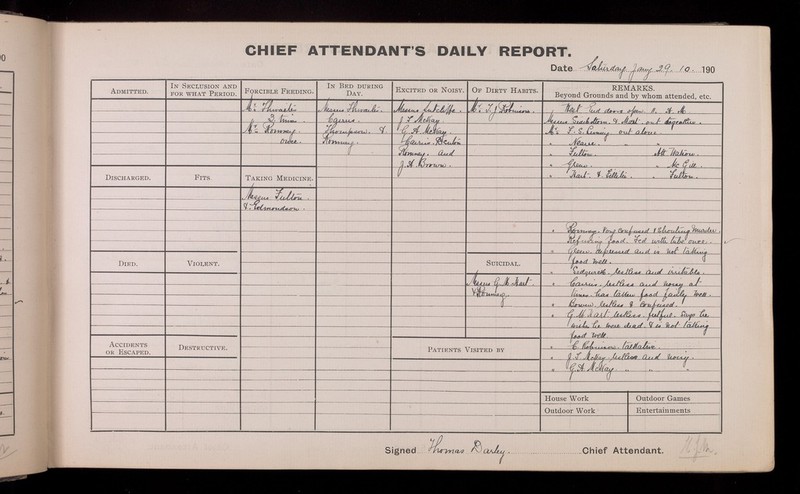 CHIEF ATTENDANT'S DAILY REPORT.
Date Saturday Jany 29. 10. 190
ADMITTED.
IN SECLUSION AND FOR WHAT PERIOD.
FORCIBLE FEEDING.
IN BED DURING DAY.
EXCITED OR NOISY.
OF DIRTY HABITS.
REMARKS.
Beyond Grounds and by whom attended, etc.
Mr Thwaite
2 times
Mr Romney
once
Messrs Thwaite.
Cairns.
Thompson. &
Romney.
Messrs Sutcliffe.
J. T. McKay
G. A. McKay.
Cairns. Benton
Romney. and
J. H. Brown.
out together.
out alone.
" Fulton. Att Watson.
" Glenn. " McGill.
" Hart. & " Fulton.
DISCHARGED.
FITS.
TAKING MEDICINE.
Messrs Fulton.
& Edmondson.
" Romney. Very confused & Shouting Murder.
Refusing food. Fed with tube once.
" Glenn depressed and is not taking
food well.
" Sedgwick. restless and irritable.
" Cairns. restless and noisy at
times. has taken food fairly well.
" Brown restless & confused.
" G. M. Hart. restless. fretful. Says he
wishes he were dead. & is not taking
food well.
" Robinson. talkative.
" J. T. McKay. restless and noisy.
" G. A. McKay. " " "
DIED.
VIOLENT.
SUICIDAL.
Messrs G. M. Hart
ACCIDENTS OR ESCAPED.
DESTRUCTIVE.
PATIENTS VISITED BY
House Work
Outdoor Games
Outdoor Work
Entertainments
Signed Thomas Darley. Chief Attendant.